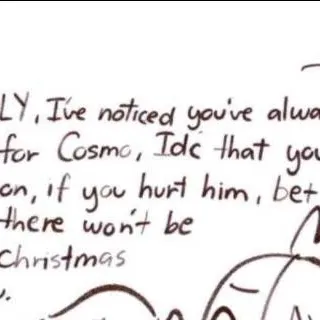 LY, I've noticed you've alwa
for Cosmo, Idc that you
on, if you hurt him, bet
there won't be
Christmas